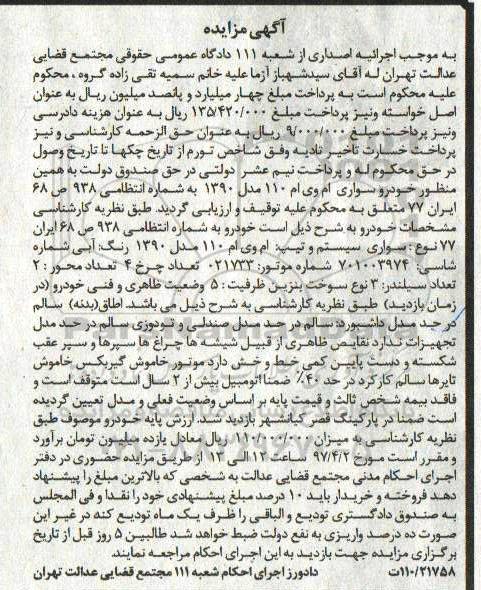 آگهی مزایده
به موجب اجرائیه اصداری از شعبه ۱۱۱ دادگاه عمومی حقوقی مجتمع قضایی
عدالت تهران له آقای سیدشهباز آزما علیه خانم سمیه تقی زاده گروه ، محکوم
علیه محکوم است به پرداخت مبلغ چهار میلیارد و پانصد میلیون ریال به عنوان
اصل خواسته ونیز پرداخت مبلغ ۱۳۵/۴۲۰/۰۰۰ ریال به عنوان هزینه دادرسی
ونیز پرداخت مبلغ ۹/۰۰۰/۰۰۰ ریال به عنوان حق الزحمه کارشناسی و نیز
پرداخت خسارت تاخیر تادیه وفق شاخص تورم از تاریخ چکها تا تاریخ وصول
در حق محکوم له و پرداخت نیم عشر دولتی در حق صندوق دولت به همین
منظور خودرو سواری ام وی ام ۱۱۰ مدل ۱۳۹۰ به شماره انتظامی ۹۳۸ ص ۶۸
ایران ۷۷ متعلق به محکوم علیه توقیف و ارزیابی گردید. طبق نظریه کارشناسی
مشخصات خودرو به شرح ذیل است خودرو به شماره انتظامی ۹۳۸ ص ۶۸ ایران
۷۷ نوع : سواری سیستم و تیپ: ام وی ام ۱۱۰ مدل ۱۳۹۰ رنگ: آبی شماره
شاسی: ۷۰۱۰۰۳۹۷۴ شماره موتور: ۰۲۱۷۳۳ تعداد چرخ ۴ تعداد محور : ۲
تعداد سیلندر: ۳ نوع سوخت بنزین ظرفیت : ۵ وضعیت ظاهری و فنی خودرو (در
زمان بازدید) طبق نظریه کارشناسی به شرح ذیل می باشد. اطاق(بدنه) سالم
در حد مدل داشبورد: سالم در حد مدل صندلی و تودوزی سالم در حد مدل
تجهیزات ندارد نقایص ظاهری از قبیل شیشه ها چراغ ها سپرها و سپر عقب
شکسته و دست پایین کمی خط و خش دارد موتور خاموش گیربکس خاموش
تایرها سالم کارکرد در حد ۴۰٪ ضمنا اتومبیل بیش از ۲ سال است متوقف است و
فاقد بیمه شخص ثالث و قیمت پایه بر اساس وضعیت فعلی و مدل تعیین گردیده
است ضمنا در پارکینگ قصر کیانشهر بازدید شد. ارزش پایه خودرو موصوف طبق
نظریه کارشناسی به میزان ۱۱۰/۰۰۰/۰۰۰ ریال معادل یازده میلیون تومان برآورد
و مقرر است مورخ ۹۷/۴/۲ ساعت ۱۲ الی ۱۳ از طریق مزایده حضوری در دفتر
اجرای احکام مدنی مجتمع قضایی عدالت به شخصی که بالاترین مبلغ را پیشنهاد
دهد فروخته و خریدار باید ۱۰ درصد مبلغ پیشنهادی خود را نقدا و فی المجلس
به صندوق دادگستری تودیع و الباقی را ظرف یک ماه تودیع کند در غیر این
صورت ده درصد واریزی به نفع دولت ضبط خواهد شد طالبین ۵ روز قبل از تاریخ
برگزاری مزایده جهت بازدید به این اجرای احکام مراجعه نمایند.
۱۱۰/۲۱۷۵۸ت دادورز اجرای احکام شعبه ۱۱۱ مجتمع قضایی عدالت تهران